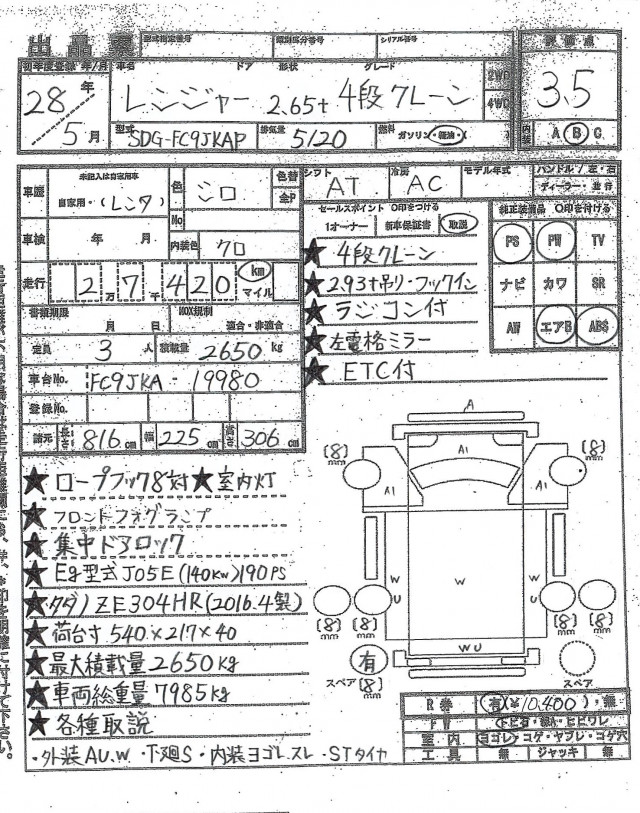 出品票 型式指定番号 類別区分番号 シリアル番号 評価点
初年度登録 年/月 車名 ドア 形状 グレード
28年 5月 レンジャー 2.65t 4段クレーン 2WD 4WD 3.5
型式 SDG-FC9JKAP 排気量 5120 燃料 ガソリン・軽油・( ) 内装 A B C
車歴 未記入は自家用車 自家用・(レンタ) 色 シロ 色替 全P
シフト AT 冷房 AC モデル年式 ハンドル/左・右
ディーラー・並行
No
車検 年 月 内装色 クロ
セールスポイント ○印をつける
1オーナー 新車保証書 取説
純正装備品 ○印を付ける
PS PW TV
ナビ カワ SR
AW エアB ABS
走行 2万7千420 km マイル
★4段クレーン
★2.93t吊り・フックイン
★ラジコン付
★左電格ミラー
★ETC付
書類期限 月 日 NOX規制 適合・非適合
定員 3人 積載量 2650kg
車台No. FC9JKA-19980
登録No.
諸元 長さ 816cm 幅 225cm 高さ 306cm
★ロープフック8対 ★室内灯
★フロントフォグランプ
★集中ドアロック
★Eg型式J05E(140kw)190PS
★タダノZE304HR(2016.4製)
★荷台寸540×217×40
★最大積載量2650kg
★車両総重量7985kg
★各種取説
・外装AU.W・下廻S・内装ヨゴレスレ・STタイヤ
A
A1
A1 A1
(8)mm (8)mm
W W W
U U
(8)mm (8)mm (8)mm (8)mm
WU
スペア 有 (8)mm スペア
R券 有(¥10,400)、無
FW トビ石・線A・ヒビワレ
室内 ヨゴレ・コゲ・ヤブレ・コゲ穴
工具 無 ジャッキ 無